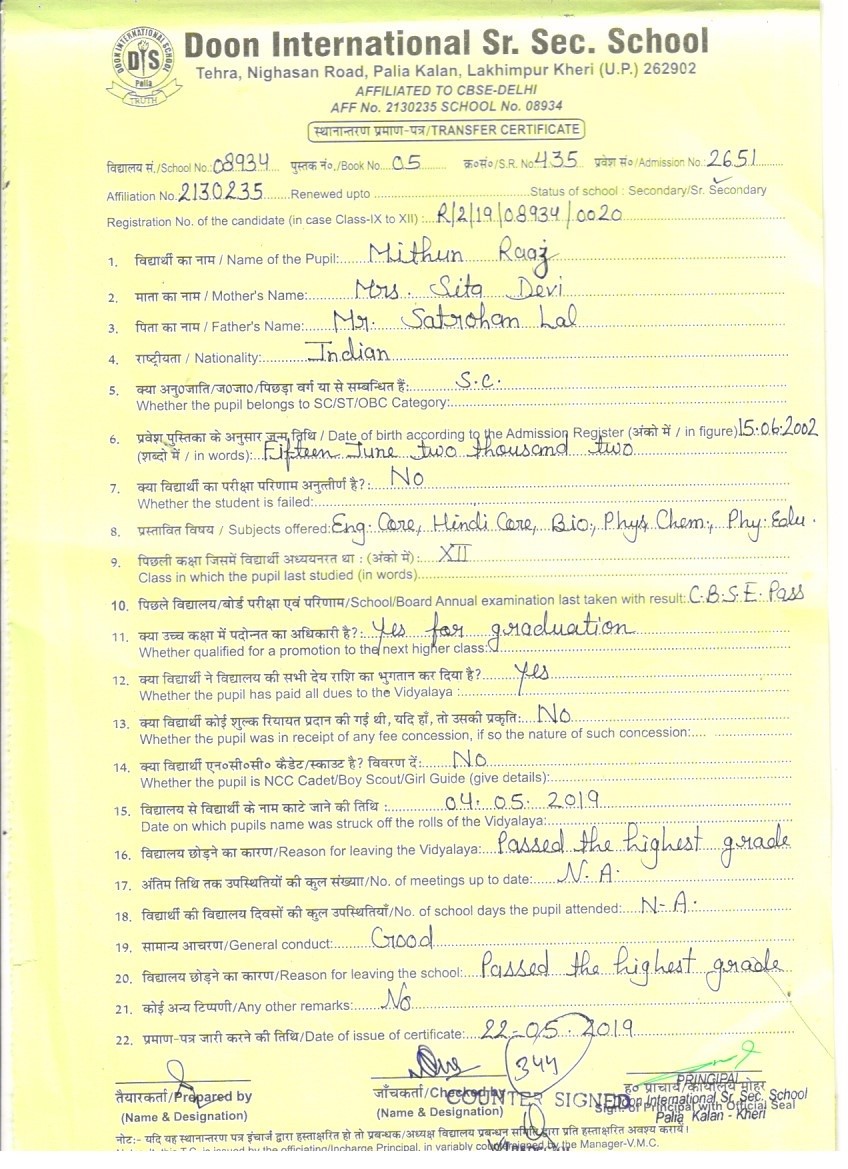 DOON INTERNATIONAL SCHOOL
DIS
Palia
TRUTH
Doon International Sr. Sec. School
Tehra, Nighasan Road, Palia Kalan, Lakhimpur Kheri (U.P.) 262902
AFFILIATED TO CBSE-DELHI
AFF No. 2130235 SCHOOL No. 08934
स्थानान्तरण प्रमाण-पत्र/TRANSFER CERTIFICATE
विद्यालय सं./School No.: 08934 पुस्तक नं०/Book No. 05 क्र०सं०/S.R. No. 435 प्रवेश सं०/Admission No.: 2651
Affiliation No. 2130235 Renewed upto Status of school : Secondary/Sr. Secondary
Registration No. of the candidate (in case Class-IX to XII) : R/2/19/08934/0020
1. विद्यार्थी का नाम / Name of the Pupil: Mithun Raaj
2. माता का नाम / Mother's Name: Mrs. Sita Devi
3. पिता का नाम / Father's Name: Mr. Satrohan Lal
4. राष्ट्रीयता / Nationality: Indian
5. क्या अनु०जाति/ज०जा०/पिछड़ा वर्ग या से सम्बन्धित हैं: S.C.
Whether the pupil belongs to SC/ST/OBC Category:
6. प्रवेश पुस्तिका के अनुसार जन्म तिथि / Date of birth according to the Admission Register (अंको में / in figure) 15.06.2002
(शब्दो में / in words): Fifteen June two thousand two
7. क्या विद्यार्थी का परीक्षा परिणाम अनुत्तीर्ण है?: No
Whether the student is failed:
8. प्रस्तावित विषय / Subjects offered: Eng. Core, Hindi Core, Bio., Phys Chem., Phy. Edu.
9. पिछली कक्षा जिसमें विद्यार्थी अध्ययनरत था : (अंको में) : XII
Class in which the pupil last studied (in words)
10. पिछले विद्यालय/बोर्ड परीक्षा एवं परिणाम/School/Board Annual examination last taken with result: C.B.S.E. Pass
11. क्या उच्च कक्षा में पदोन्नत का अधिकारी है?: Yes for graduation
Whether qualified for a promotion to the next higher class:
12. क्या विद्यार्थी ने विद्यालय की सभी देय राशि का भुगतान कर दिया है? yes
Whether the pupil has paid all dues to the Vidyalaya :
13. क्या विद्यार्थी कोई शुल्क रियायत प्रदान की गई थी, यदि हाँ, तो उसकी प्रकृति: No
Whether the pupil was in receipt of any fee concession, if so the nature of such concession:
14. क्या विद्यार्थी एन०सी०सी० कैडेट/स्काउट है? विवरण दें: No
Whether the pupil is NCC Cadet/Boy Scout/Girl Guide (give details):
15. विद्यालय से विद्यार्थी के नाम काटे जाने की तिथि : 04.05.2019
Date on which pupils name was struck off the rolls of the Vidyalaya:
16. विद्यालय छोड़ने का कारण/Reason for leaving the Vidyalaya: Passed the highest grade
17. अंतिम तिथि तक उपस्थितियों की कुल संख्या/No. of meetings up to date: N.A.
18. विद्यार्थी की विद्यालय दिवसों की कुल उपस्थितियाँ/No. of school days the pupil attended: N-A.
19. सामान्य आचरण/General conduct: Good
20. विद्यालय छोड़ने का कारण/Reason for leaving the school: Passed the highest grade
21. कोई अन्य टिप्पणी/Any other remarks: No
22. प्रमाण-पत्र जारी करने की तिथि/Date of issue of certificate: 22-05.2019
344
तैयारकर्ता/Prepared by
(Name & Designation)
जाँचकर्ता/Checked by
(Name & Designation)
COUNTER SIGNED
PRINCIPAL
ह० प्राचार्य/कार्यालय मोहर
Doon International Sr. Sec. School
Sign. of Principal with Official Seal
Palia Kalan - Kheri
नोट:- यदि यह स्थानान्तरण पत्र इंचार्ज द्वारा हस्ताक्षरित हो तो प्रबन्धक/अध्यक्ष विद्यालय प्रबन्धन समिति द्वारा प्रति हस्ताक्षरित अवश्य करायें।
this T.C. is issued by the officiating/Incharge Principal, in variably countersigned by the Manager-V.M.C.